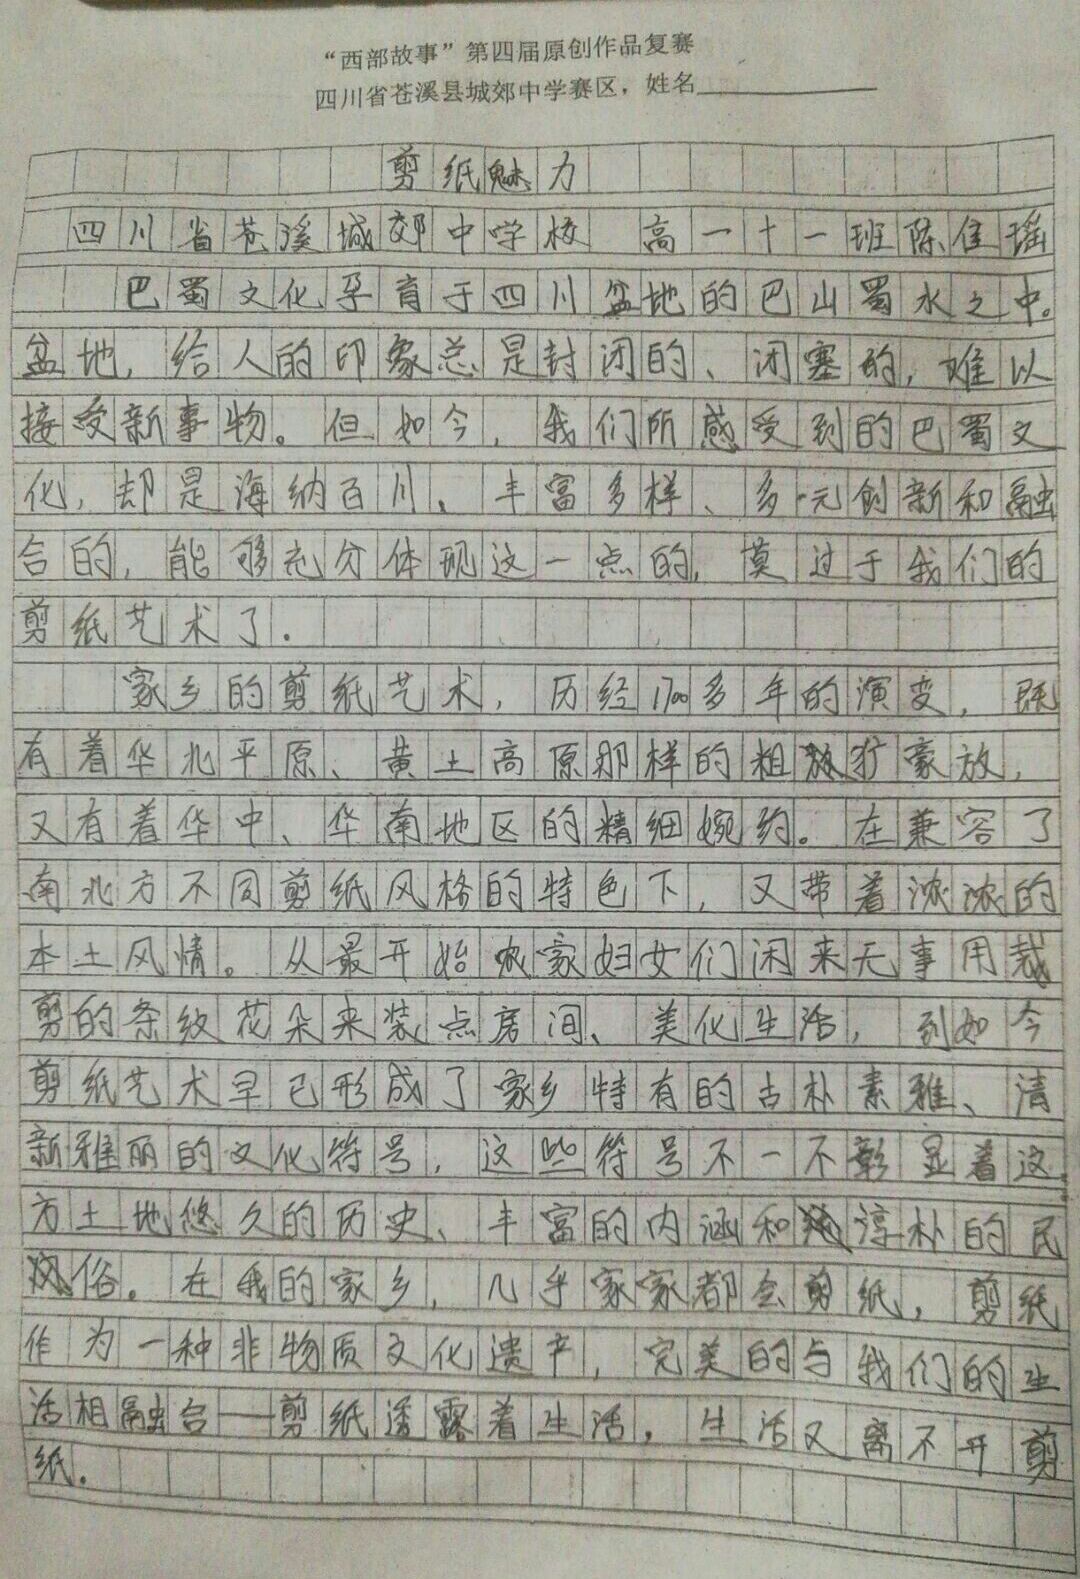 “西部故事”第四届原创作品复赛
四川省苍溪县城郊中学赛区，姓名
剪纸魅力
四川省苍溪城郊中学校 高一十一班陈佳瑶
巴蜀文化孕育于四川盆地的巴山蜀水之中。
盆地，给人的印象总是封闭的、闭塞的，难以
接受新事物。但如今，我们所感受到的巴蜀文
化，却是海纳百川、丰富多样、多元创新和融
合的，能够充分体现这一点的，莫过于我们的
剪纸艺术了。
家乡的剪纸艺术，历经1700多年的演变，既
有着华北平原、黄土高原那样的粗犷豪放，
又有着华中、华南地区的精细婉约。在兼容了
南北方不同剪纸风格的特色下，又带着浓浓的
本土风情。从最开始农家妇女们闲来无事用裁
剪的条纹花朵来装点房间、美化生活，到如今
剪纸艺术早已形成了家乡特有的古朴素雅、清
新雅丽的文化符号，这些符号不一不彰显着这
方土地悠久的历史、丰富的内涵和淳朴的民
俗。在我的家乡，几乎家家都会剪纸，剪纸
作为一种非物质文化遗产，完美的与我们的生
活相融合——剪纸透露着生活，生活又离不开剪
纸。